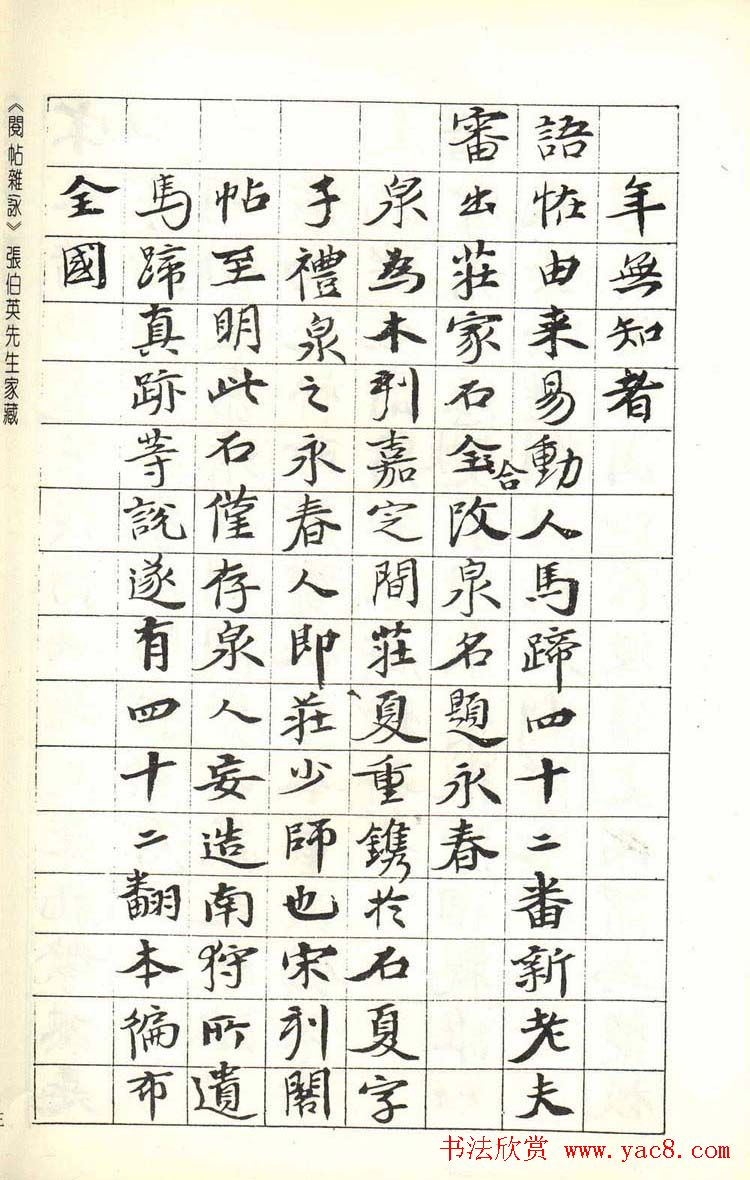 年無知者
語怪由来易動人馬蹄四十二番新老夫
審出莊家石全合改泉名題永春
泉為木刊嘉定間莊夏重鐫於石夏字
子禮泉之永春人即莊少師也宋刊閣
帖至明此石僅存泉人妄造南狩所遺
馬蹄真跡等説遂有四十二翻本徧布
全國
《閱帖雜詠》張伯英先生家藏
三
书法欣赏 www.yac8.com